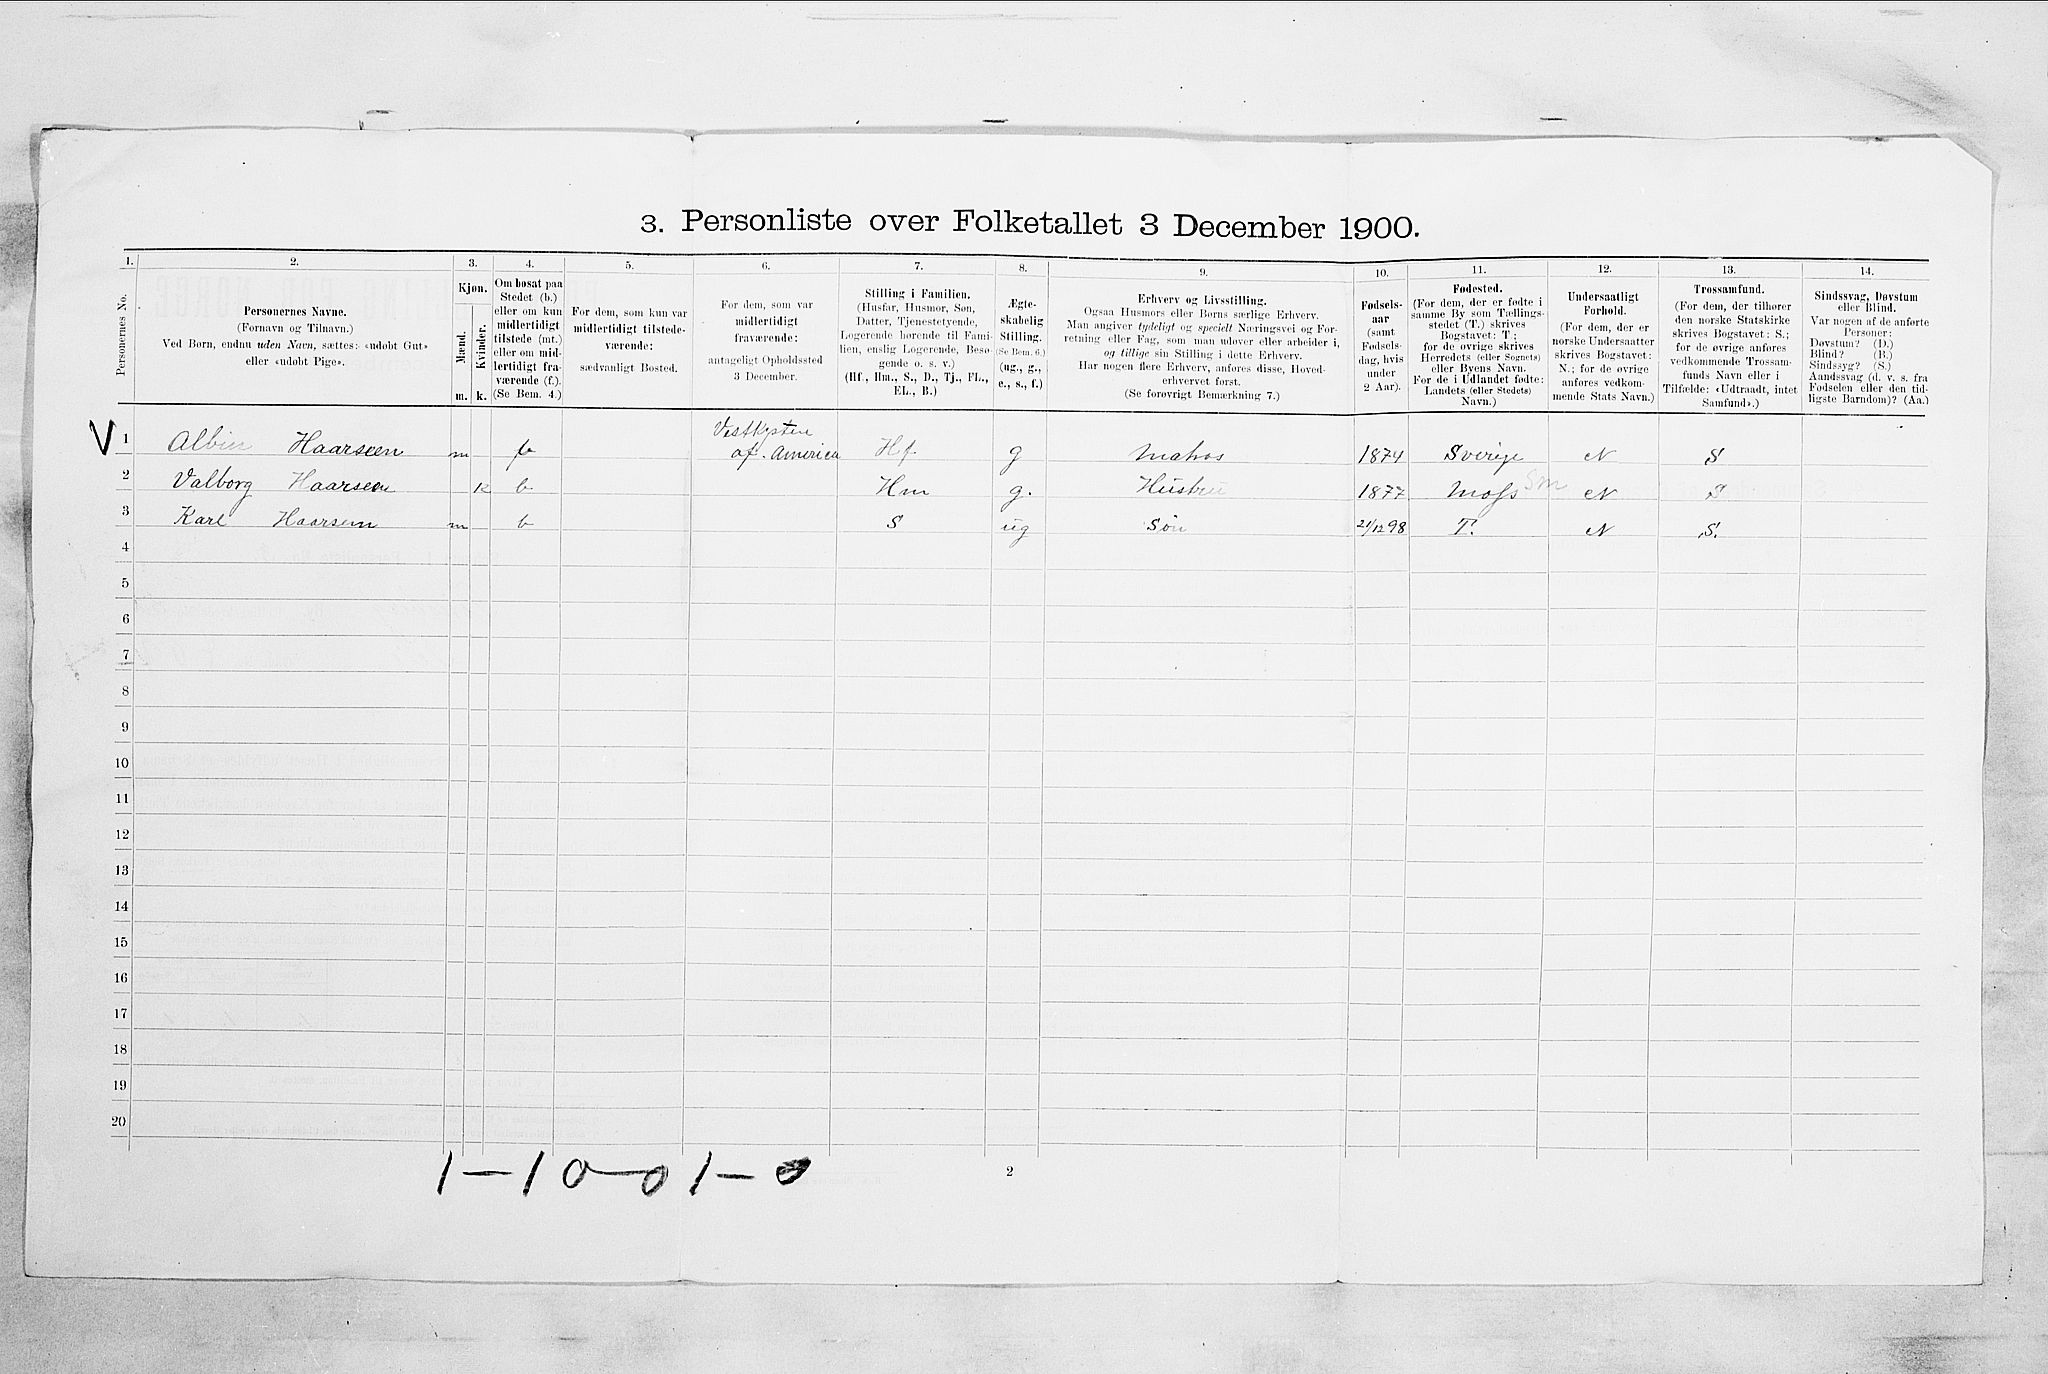 3. Personliste over Folketallet 3 December 1900.
1. 2. 3. 4. 5. 6. 7. 8. 9. 10. 11. 12. 13. 14.
Personernes No.
Personernes Navne.
(Fornavn og Tilnavn.)
Ved Børn, endnu uden Navn, sættes: «udøbt Gut»
eller «udøbt Pige».
Kjøn.
Mænd.
Kvinder.
m. k.
Om bosat paa
Stedet (b.)
eller om kun
midlertidigt
tilstede (mt.)
eller om mid-
lertidigt fra-
værende (f.).
(Se Bem. 4.)
For dem, som kun var
midlertidigt tilstede-
værende:
sædvanligt Bosted.
For dem, som var
midlertidigt
fraværende:
antageligt Opholdssted
3 December.
Stilling i Familien.
(Husfar, Husmor, Søn,
Datter, Tjenestetyende,
Logerende hørende til Fami-
lien, enslig Logerende, Besø-
gende o. s. v.)
(Hf., Hm., S., D., Tj., FL.,
EL., B.)
Ægte-
skabelig
Stilling.
(Se Bem. 6.)
(ug., g.,
e., s., f.)
Erhverv og Livsstilling.
Ogsaa Husmors eller Børns særlige Erhverv.
Man angiver tydeligt og specielt Næringsvei og For-
retning eller Fag, som man udøver eller arbeider i,
og tillige sin Stilling i dette Erhverv.
Har nogen flere Erhverv, anføres disse, Hoved-
erhvervet først.
(Se forøvrigt Bemærkning 7.)
Fødsels-
aar
(samt
Fødsels-
dag, hvis
under
2 Aar).
Fødested.
(For dem, der er fødte i
samme By som Tællings-
stedet (T.) skrives
Bogstavet: T;
for de øvrige skrives
Herredets (eller Sognets)
eller Byens Navn.
For de i Udlandet fødte:
Landets (eller Stedets)
Navn.)
Undersaatligt
Forhold.
(For dem, der er
norske Undersaatter
skrives Bogstavet:
N.; for de øvrige
anføres vedkom-
mende Stats Navn.)
Trossamfund.
(For dem, der tilhører
den norske Statskirke
skrives Bogstavet: S.;
for de øvrige anføres
vedkommende Trossam-
funds Navn eller i
Tilfælde: «Udtraadt, intet
Samfund».)
Sindssvag, Døvstum
eller Blind.
Var nogen af de anførte
Personer:
Døvstum? (D.)
Blind? (B.)
Sindssyg? (S.)
Aandssvag (d. v. s. fra
Fødselen eller den tid-
ligste Barndom)? (Aa.)
V 1 Albin Haarseen m b Vestkysten af. America Hf g Matros 1874 Sverige N S
2 Valborg Haarseen k b Hm g. Hustru 1877 Moss Sm N S
3 Karl Haarsem m b S ug Søn 21/12 98 T. N S.
4
5
6
7
8
9
10
11
12
13
14
15
16
17
18
19
20
1-10-01-0
2